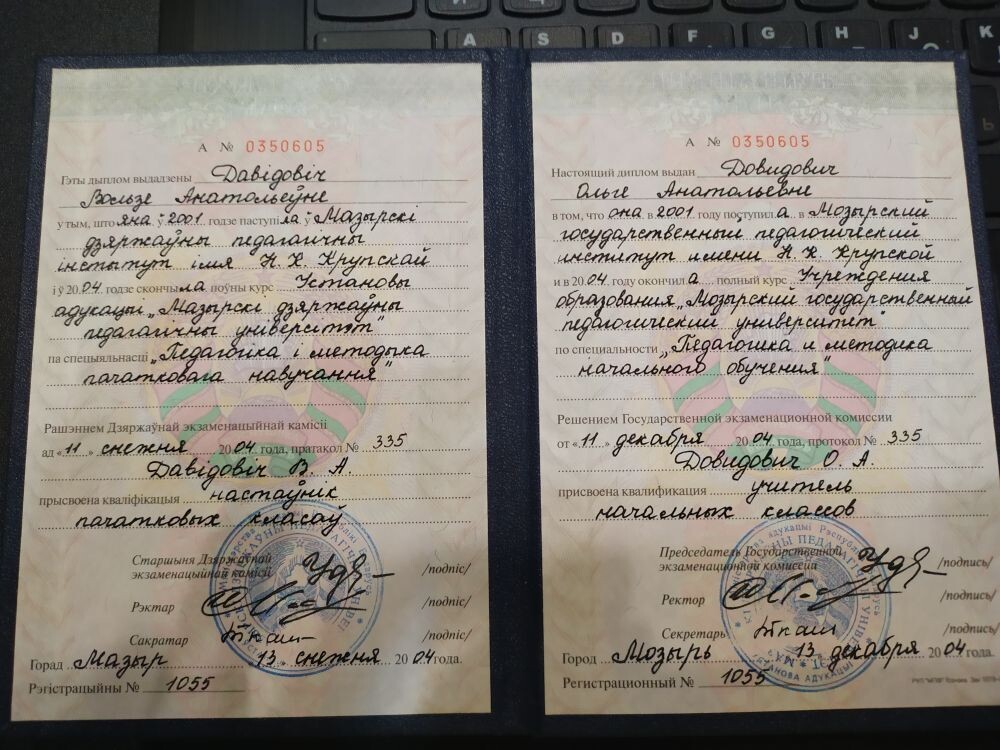 А № 0350605
Гэты дыплом выдадзены Давідовіч
Вользе Анатольеўне
у тым, што яна ў 2001 годзе паступіла ў Мазырскі
дзяржаўны педагагічны
інстытут імя Н К Крупскай
і ў 2004 годзе скончыла поўны курс Установы
адукацыі „Мазырскі дзяржаўны
педагагічны універсітэт"
па спецыяльнасці „Педагогіка і методыка
пачатковага навучання"
Рашэннем Дзяржаўнай экзаменацыйнай камісіі
ад «11» снежня 2004 года, пратакол № 335
Давідовіч В. А.
прысвоена кваліфікацыя настаўнік
пачатковых класаў
Старшыня Дзяржаўнай
экзаменацыйнай камісіі /подпіс/
Рэктар /подпіс/
Сакратар /подпіс/
Горад Мазыр 13 снежня 2004 года.
Рэгістрацыйны № 1055
А № 0350605
Настоящий диплом выдан Довидович
Ольге Анатольевне
в том, что она в 2001 году поступила в Мозырский
государственный педагогический
институт имени Н К Крупской
и в 2004 году окончила полный курс Учреждения
образования „Мозырский государственный
педагогический университет"
по специальности „Педагогика и методика
начального обучения"
Решением Государственной экзаменационной комиссии
от «11» декабря 2004 года, протокол № 335
Довидович О. А.
присвоена квалификация учитель
начальных классов
Председатель Государственной
экзаменационной комиссии /подпись/
Ректор /подпись/
Секретарь /подпись/
Город Мозырь 13 декабря 2004 года.
Регистрационный № 1055
A S D F G H J K